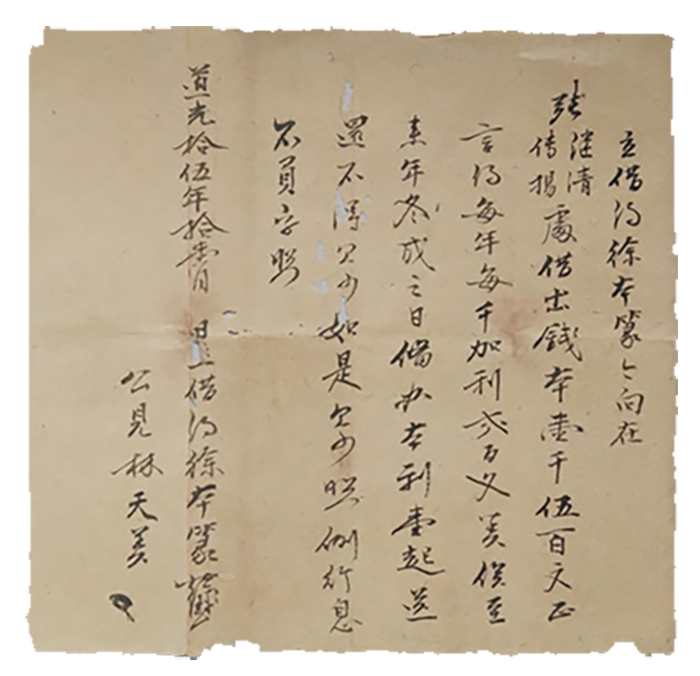 立借约徐本篆今向在
张继清
传揚處借出錢本壹千伍百文正
言约每年每千加利弍百文算俟至
来年冬成之日偹办本利壹起送
還不得欠少如是欠少照例行息
不負字照
道光拾伍年拾壹月 日立借约徐本篆
公見林天美